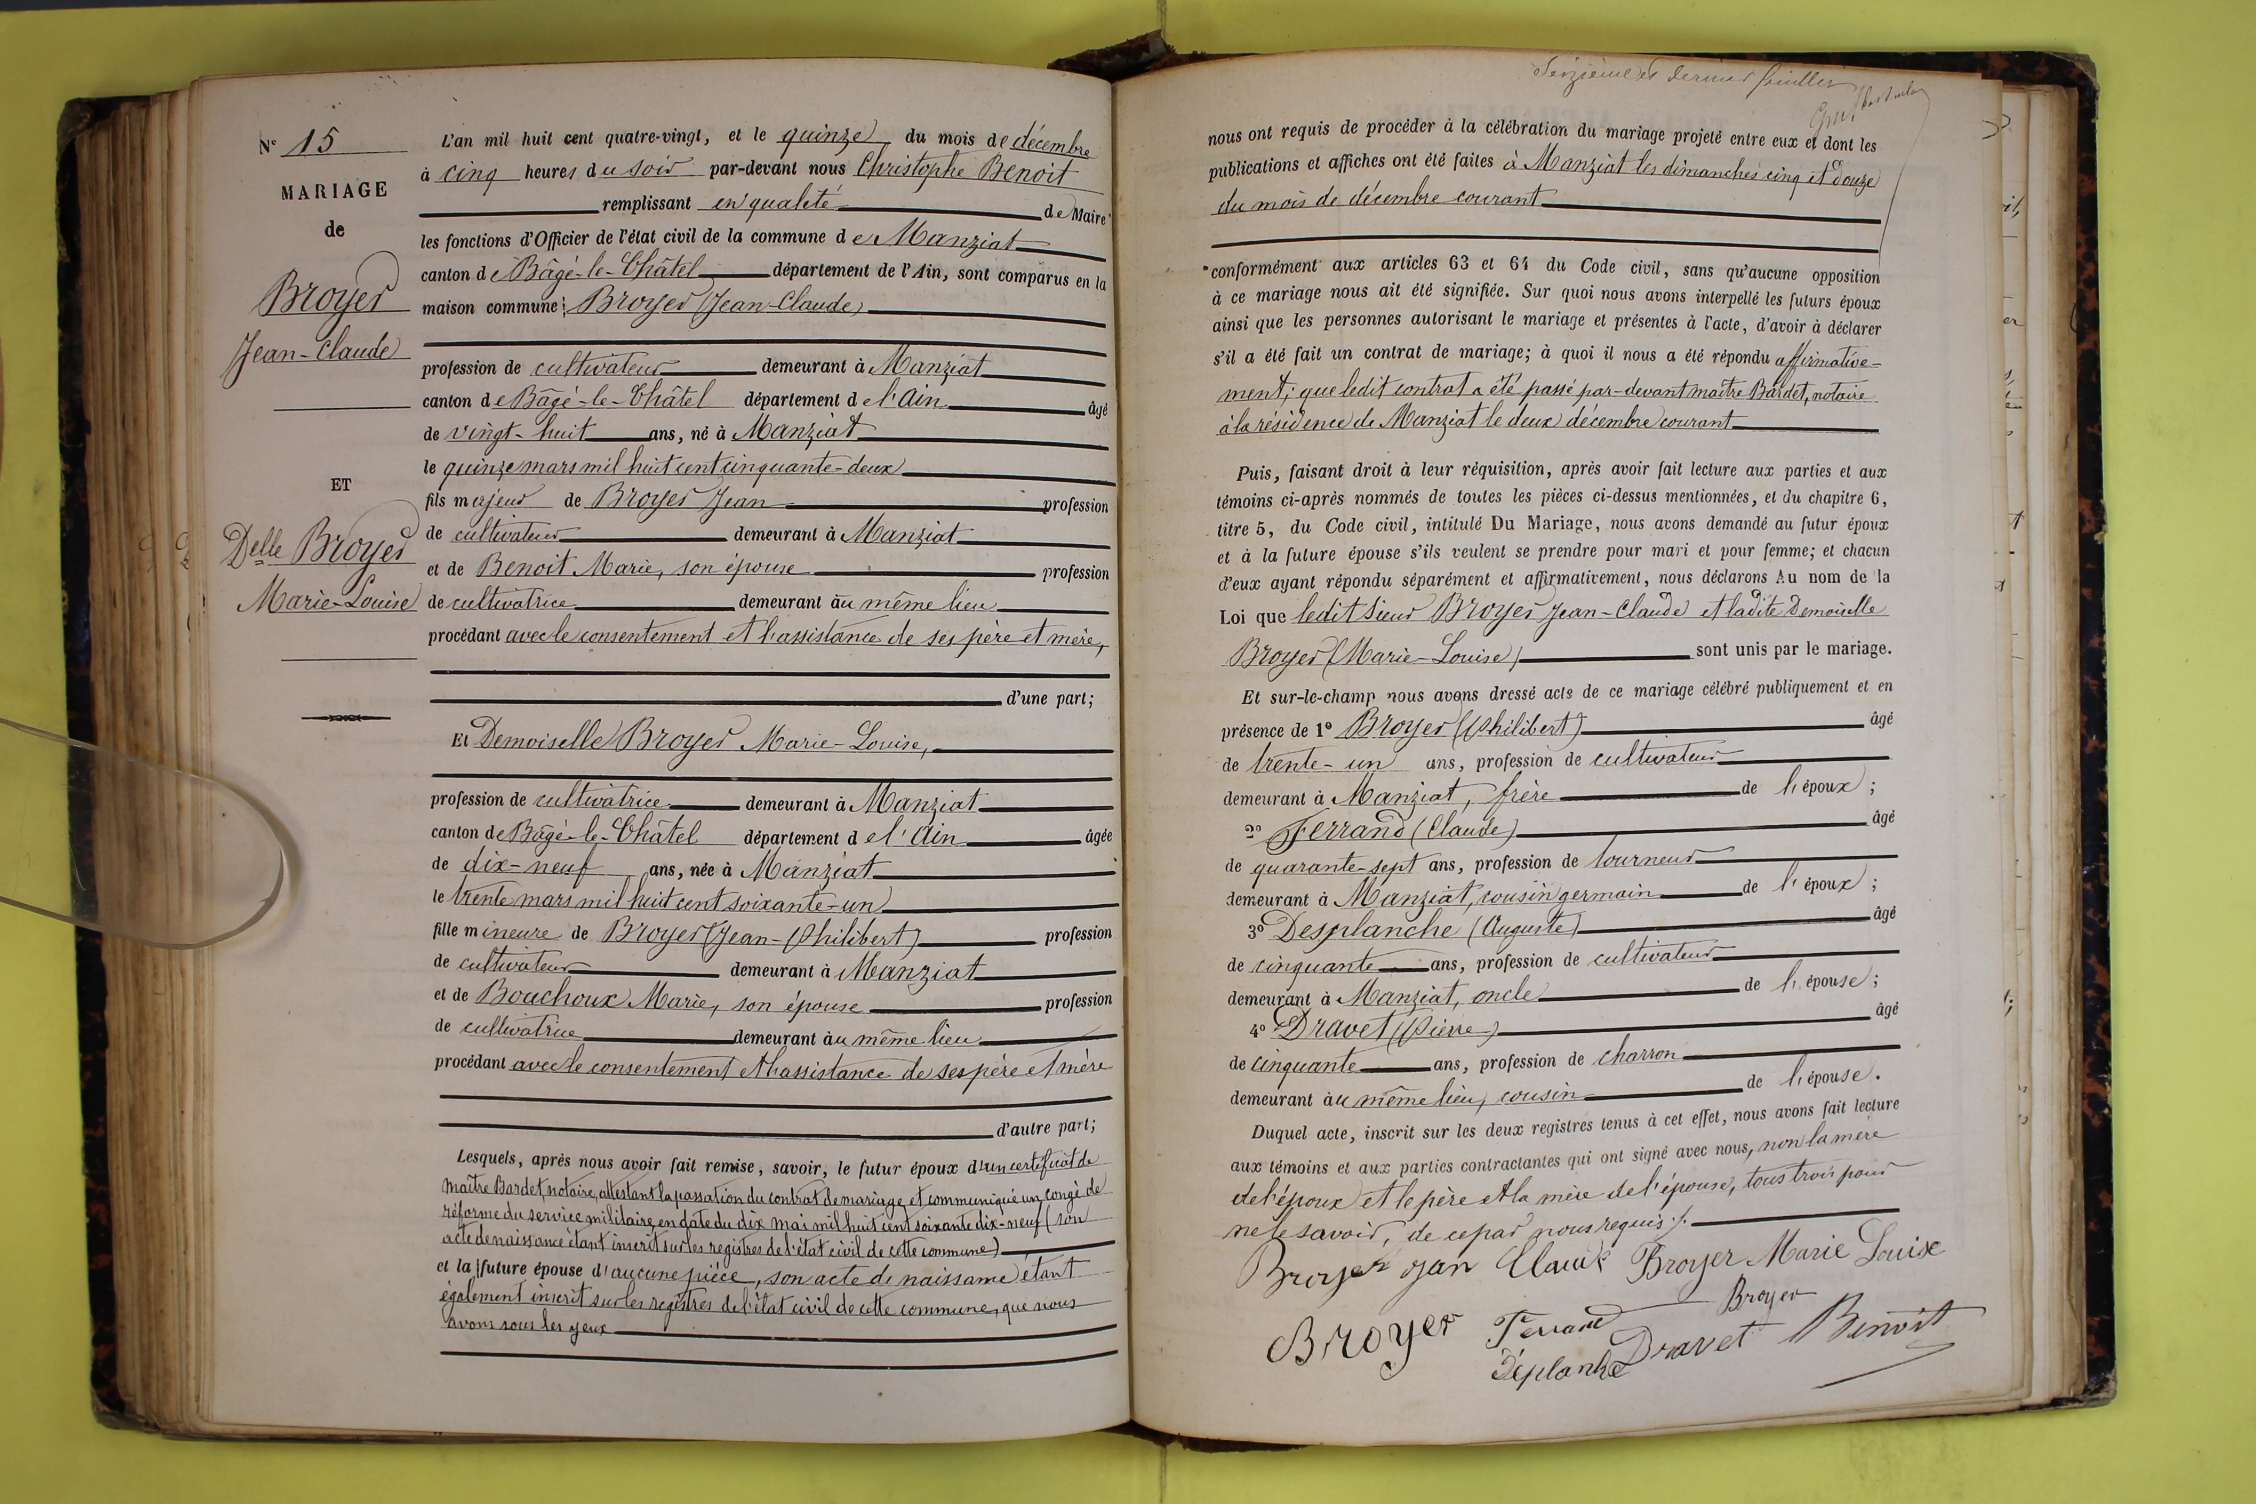 N° 15
MARIAGE
de
Broyer
Jean-Claude
ET
Delle Broyer
Marie-Louise
L'an mil huit cent quatre-vingt, et le quinze du mois de décembre
à cinq heures du soir par-devant nous Christophe Benoit
remplissant en qualité de Maire
les fonctions d'Officier de l'état civil de la commune de Manziat
canton de Bâgé-le-Châtel département de l'Ain, sont comparus en la
maison commune: Broyer (Jean-Claude)
profession de cultivateur demeurant à Manziat
canton de Bâgé-le-Châtel département de l'Ain âgé
de vingt-huit ans, né à Manziat
le quinze mars mil huit cent cinquante-deux
fils majeur de Broyer Jean profession
de cultivateur demeurant à Manziat
et de Benoit Marie, son épouse profession
de cultivatrice demeurant au même lieu
procédant avec le consentement et l'assistance de ses père et mère,
d'une part;
Et Demoiselle Broyer Marie-Louise,
profession de cultivatrice demeurant à Manziat
canton de Bâgé-le-Châtel département de l'Ain âgée
de dix-neuf ans, née à Manziat
le trente mars mil huit cent soixante-un
fille mineure de Broyer (Jean-Philibert) profession
de cultivateur demeurant à Manziat
et de Bouchoux Marie, son épouse profession
de cultivatrice demeurant au même lieu
procédant avec le consentement et l'assistance de ses père et mère
d'autre part;
Lesquels, après nous avoir fait remise, savoir, le futur époux d'un certificat de
maître Bardet, notaire, attestant la passation du contrat de mariage et communiqué un congé de
réforme du service militaire en date du dix mai mil huit cent soixante dix-neuf (son
acte de naissance étant inscrit sur les registres de l'état civil de cette commune)
et la future épouse d'aucune pièce, son acte de naissance étant
également inscrit sur les registres de l'état civil de cette commune, que nous
avons sous les yeux
Seizième et dernier feuillet
nous ont requis de procéder à la célébration du mariage projeté entre eux et dont les
publications et affiches ont été faites à Manziat les dimanches cinq et douze
du mois de décembre courant
conformément aux articles 63 et 64 du Code civil, sans qu'aucune opposition
à ce mariage nous ait été signifiée. Sur quoi nous avons interpellé les futurs époux
ainsi que les personnes autorisant le mariage et présentes à l'acte, d'avoir à déclarer
s'il a été fait un contrat de mariage; à quoi il nous a été répondu affirmative-
ment; que ledit contrat a été passé par-devant maître Bardet, notaire
à la résidence de Manziat le deux décembre courant
Puis, faisant droit à leur réquisition, après avoir fait lecture aux parties et aux
témoins ci-après nommés de toutes les pièces ci-dessus mentionnées, et du chapitre 6,
titre 5, du Code civil, intitulé Du Mariage, nous avons demandé au futur époux
et à la future épouse s'ils veulent se prendre pour mari et pour femme; et chacun
d'eux ayant répondu séparément et affirmativement, nous déclarons Au nom de la
Loi que ledit Sieur Broyer Jean-Claude et ladite Demoiselle
Broyer (Marie-Louise) sont unis par le mariage.
Et sur-le-champ nous avons dressé acte de ce mariage célébré publiquement et en
présence de 1° Broyer (Philibert) âgé
de trente-un ans, profession de cultivateur
demeurant à Manziat, frère de l'époux;
2° Ferrand (Claude) âgé
de quarante-sept ans, profession de tourneur
demeurant à Manziat, cousin germain de l'époux;
3° Desplanche (Auguste) âgé
de cinquante ans, profession de cultivateur
demeurant à Manziat, oncle de l'épouse;
4° Dravet (Pierre) âgé
de cinquante ans, profession de charron
demeurant au même lieu, cousin de l'épouse.
Duquel acte, inscrit sur les deux registres tenus à cet effet, nous avons fait lecture
aux témoins et aux parties contractantes qui ont signé avec nous, non la mère
de l'époux et le père et la mère de l'épouse, tous trois pour
ne le savoir, de ce par nous requis ./.
Broyer jan Claude Broyer Marie Louise
Broyer Ferrand Broyer
Déplanche Dravet Benoit